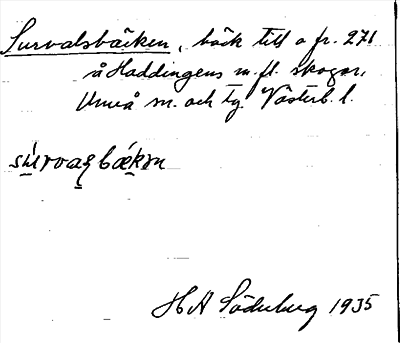 Survalsbäcken, bäck till o fr. 271
å Haddingens m.fl. skogar,
Umeå sn. och tg. Västerb. l.
HA Söderberg 1935